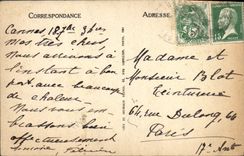 CORRESPONDANCE
ADRESSE
Cannes
Mes bien chers,
Nous arrivons à
l'instant à bon
port avec beaucoup
de chaleur
Nous vous em
brassons bien
affectueusement
Madame et
Monsieur Blot
Teinturerie
64, rue Dulong 64
Paris
17e Arrt